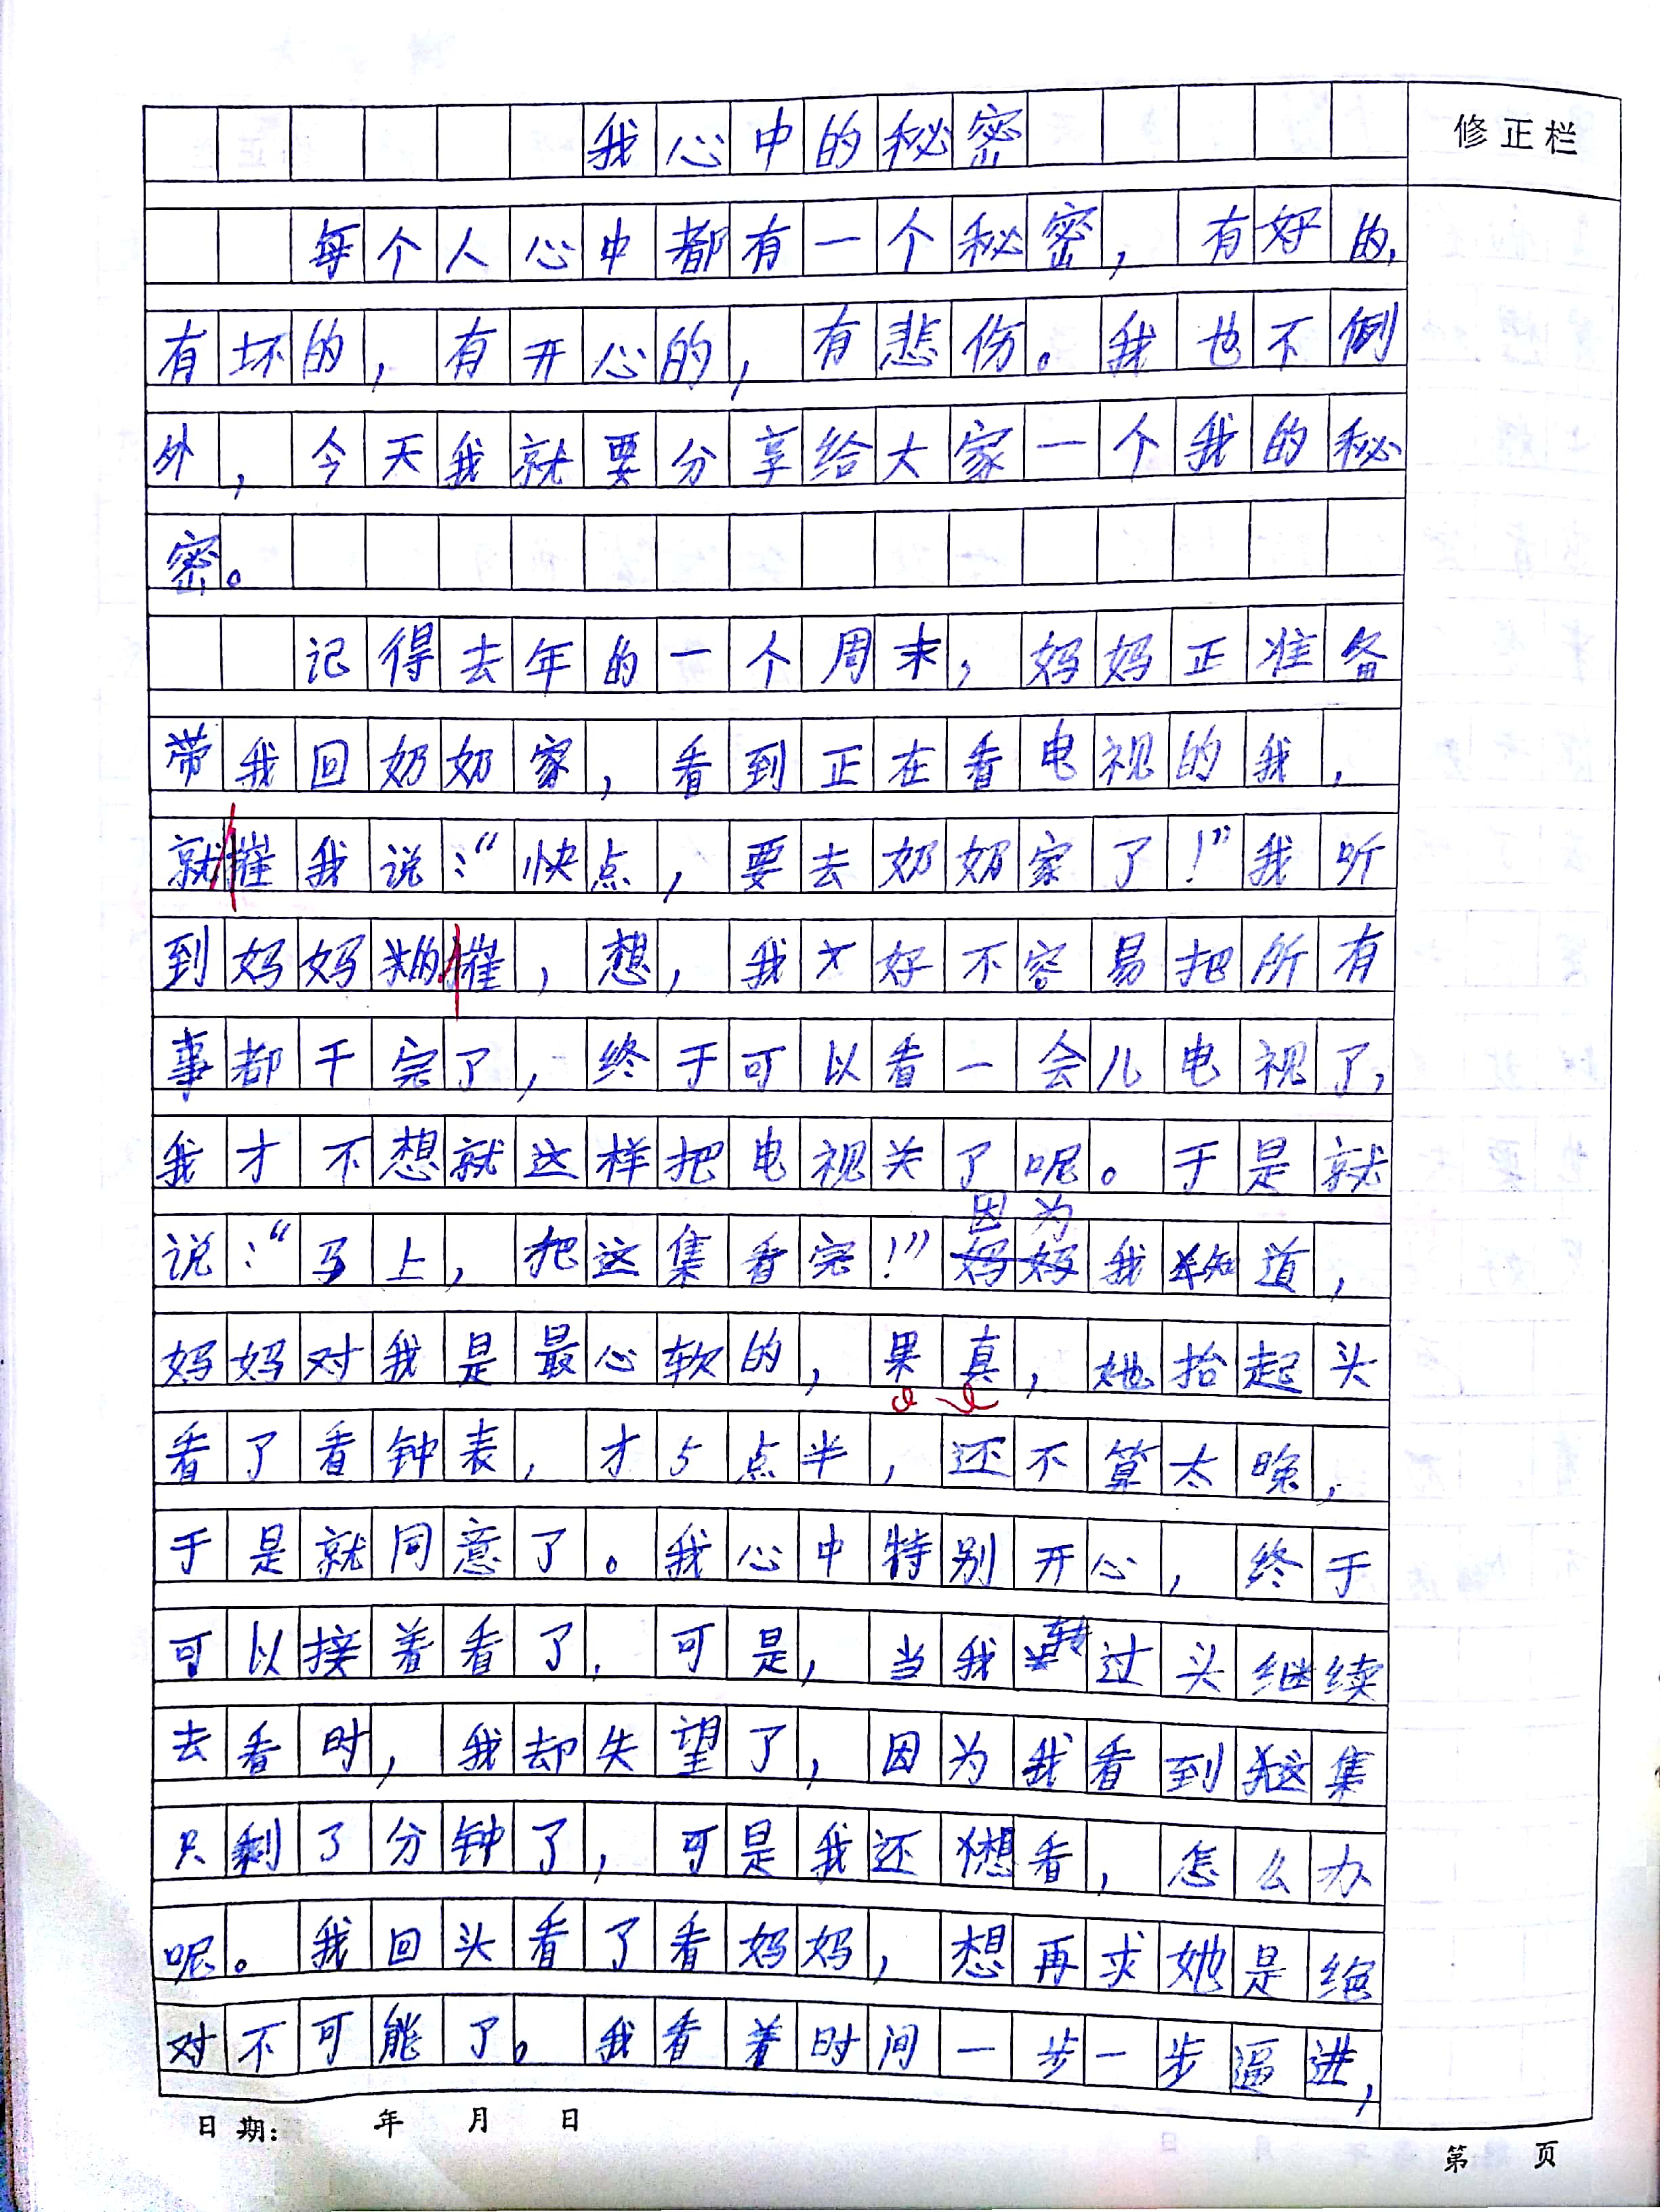 我心中的秘密
修正栏
每个人心中都有一个秘密，有好的，
有坏的，有开心的，有悲伤。我也不例
外，今天我就要分享给大家一个我的秘
密。
记得去年的一个周末，妈妈正准备
带我回奶奶家，看到正在看电视的我，
就催我说：“快点，要去奶奶家了！”我听
到妈妈的催，想，我才好不容易把所有
事都干完了，终于可以看一会儿电视了，
我才不想就这样把电视关了呢。于是就
说：“马上，把这集看完！”因为我知道，
妈妈对我是最心软的，果真，她抬起头
看了看钟表，才5点半，还不算太晚，
于是就同意了。我心中特别开心，终于
可以接着看了，可是，当我转过头继续
去看时，我却失望了，因为我看到这集
只剩了分钟了，可是我还想看，怎么办
呢。我回头看了看妈妈，想再求她是绝
对不可能了。我看着时间一步一步逼进，
日期： 年 月 日
第 页